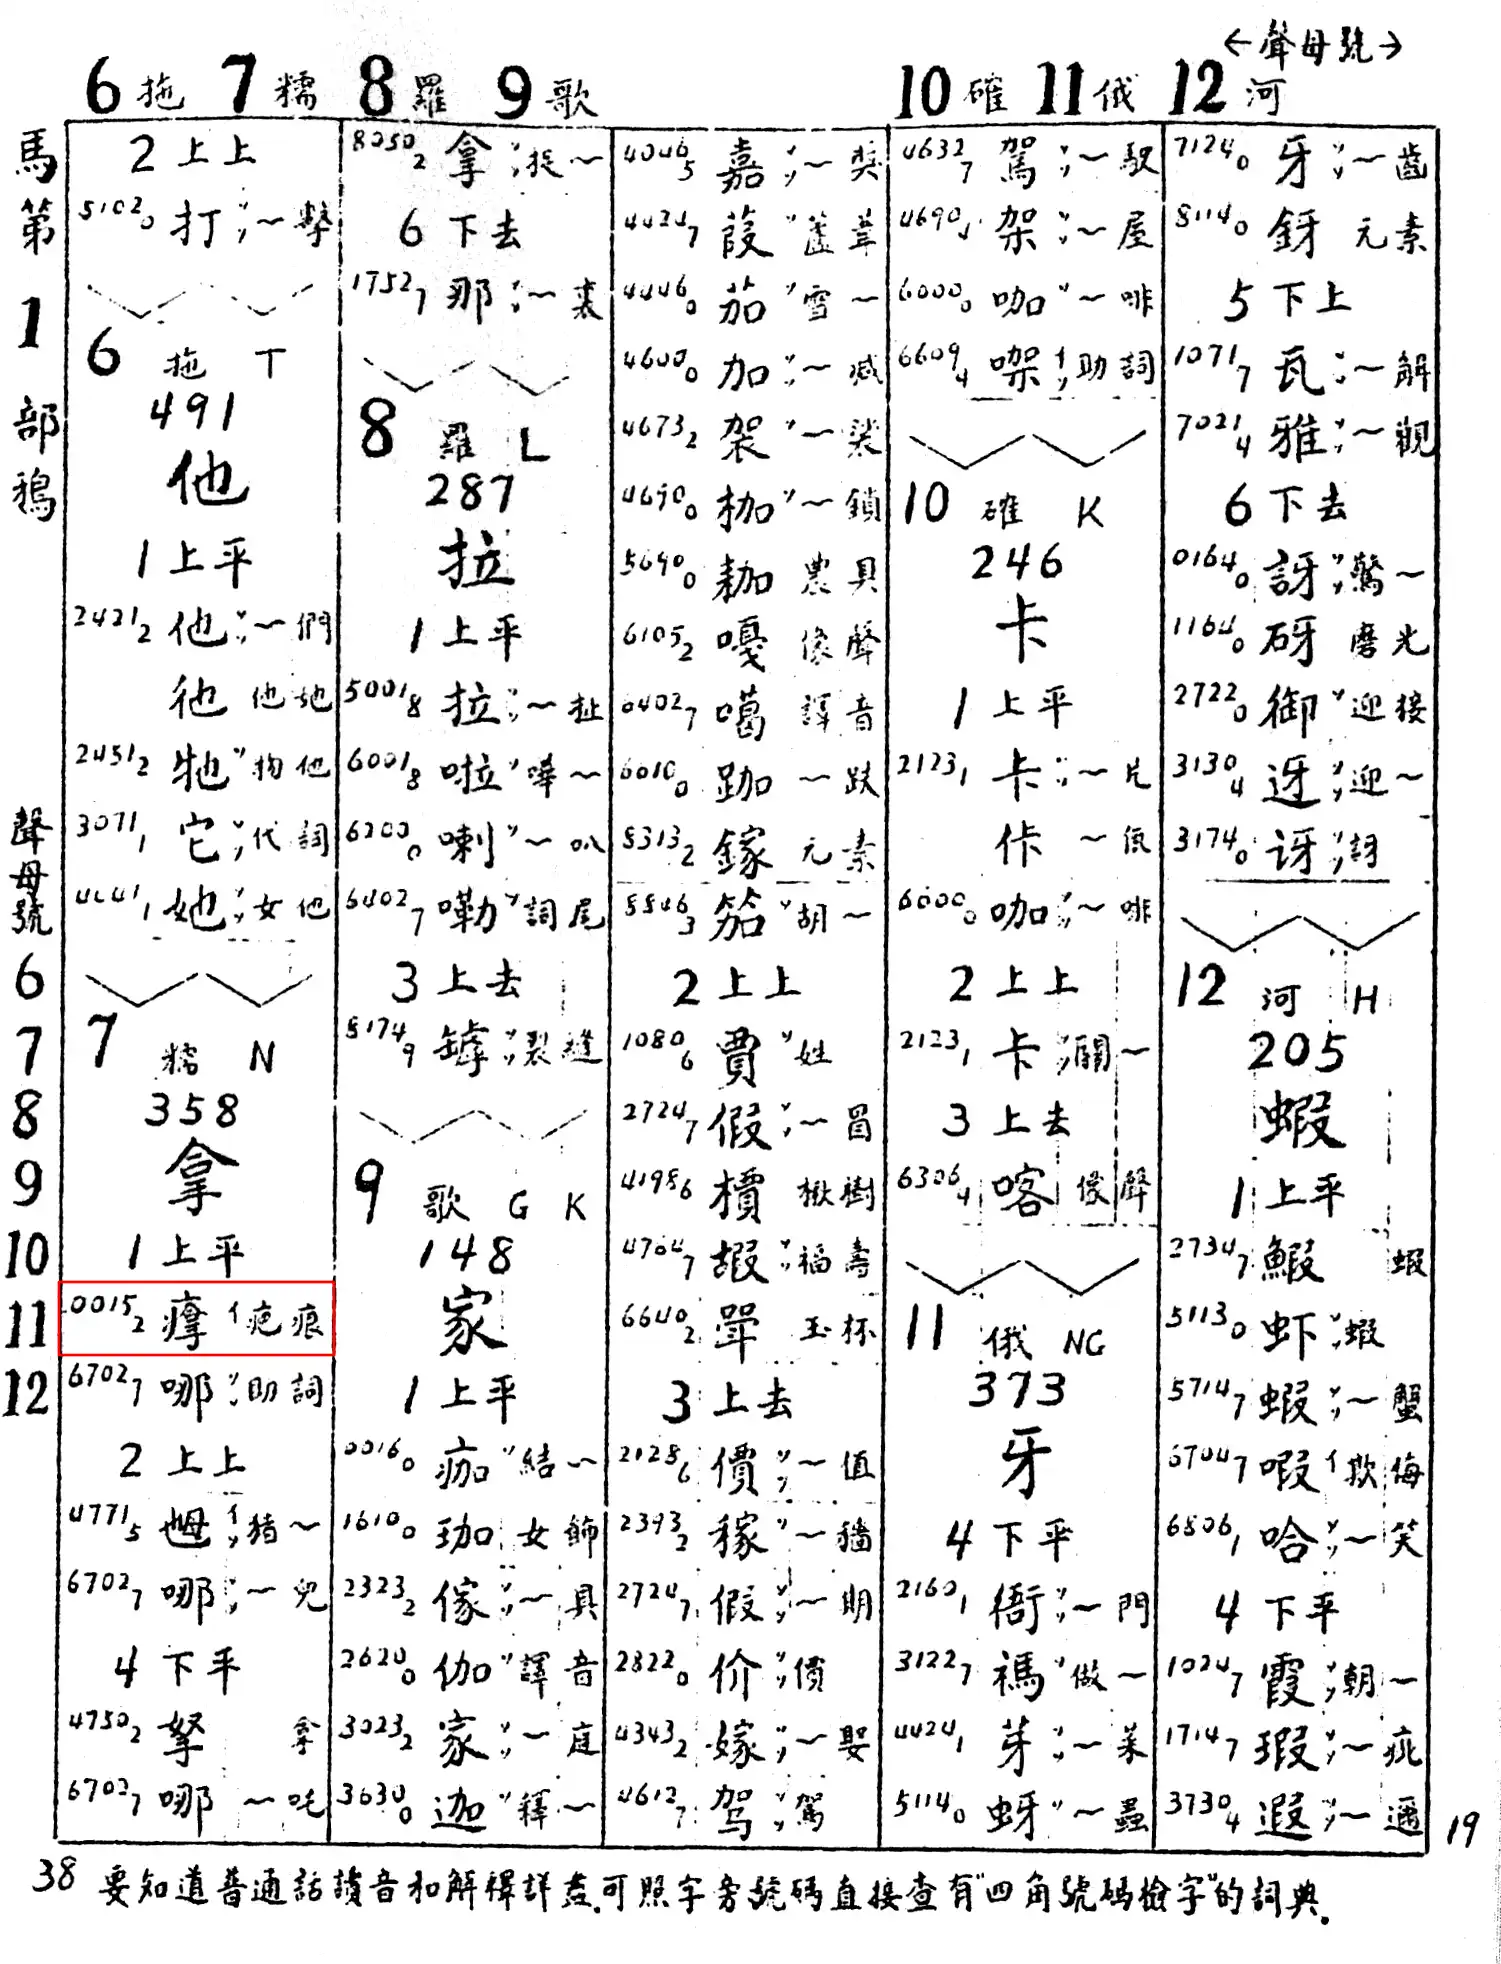 ←聲母號→
6拖 7糯 8羅 9歌 10確 11俄 12河
馬第1部鴉
聲母號
6
7
8
9
10
11
12
2上上
51020 打 ~擊
6 拖 T
491
他
1上平
24212 他 ~們
彵 他她
24512 牠 物他
30711 它 代詞
她 女他
7 糯 N
358
拿
1上平
00152 㾱 疤痕
67027 哪 助詞
2上上
47715 乸 豬~
67027 哪 ~兒
4下平
47502 拏 拿
67027 哪 ~吒
80502 拿 捉~
6下去
17527 那 ~裏
8 羅 L
287
拉
1上平
50018 拉 ~扯
60018 啦 嘩~
62000 喇 ~叭
64027 嘞 詞尾
3上去
81749 罅 裂縫
9 歌 G K
148
家
1上平
00160 痂 結~
16100 珈 女飾
23232 傢 ~具
26200 伽 譯音
30232 家 ~庭
36300 迦 釋~
40465 嘉 ~奖
44247 葭 蘆葦
44460 茄 雪~
46000 加 ~减
46732 袈 ~裟
46900 枷 ~鎖
56900 耞 農具
61052 嘎 像聲
64027 噶 譯音
66100 跏 ~趺
83132 鎵 元素
88463 笳 胡~
2上上
10806 賈 姓
27247 假 ~冒
41986 檟 楸樹
47647 嘏 福壽
66402 斝 玉杯
3上去
21286 價 ~值
23932 稼 ~穡
27247 假 ~期
28220 价 價
43432 嫁 ~娶
46127 驾 駕
46327 駕 ~馭
46904 架 ~屋
60000 咖 ~啡
66094 㗎 助詞
10 確 K
246
卡
1上平
21231 卡 ~片
佧 ~佤
60000 咖 ~啡
2上上
21231 卡 關~
3上去
63064 喀 像聲
11 俄 NG
373
牙
4下平
21601 衙 ~門
31227 禡 做~
44241 芽 ~菜
51140 蚜 ~蟲
71240 牙 ~齒
81140 釾 元素
5下上
10717 瓦 ~解
70214 雅 ~觀
6下去
01640 訝 驚~
11640 砑 磨光
27220 御 迎接
31304 迓 迎~
31740 讶 訝
12 河 H
205
蝦
1上平
27347 鰕 蝦
51130 虾 蝦
57147 蝦 ~蟹
67047 嘏 欺侮
68061 哈 ~笑
4下平
10247 霞 朝~
17147 瑕 ~疵
37304 遐 ~邇
38 要知道普通話讀音和解釋詳盡,可照字旁號碼直接查有"四角號碼檢字"的詞典.
19